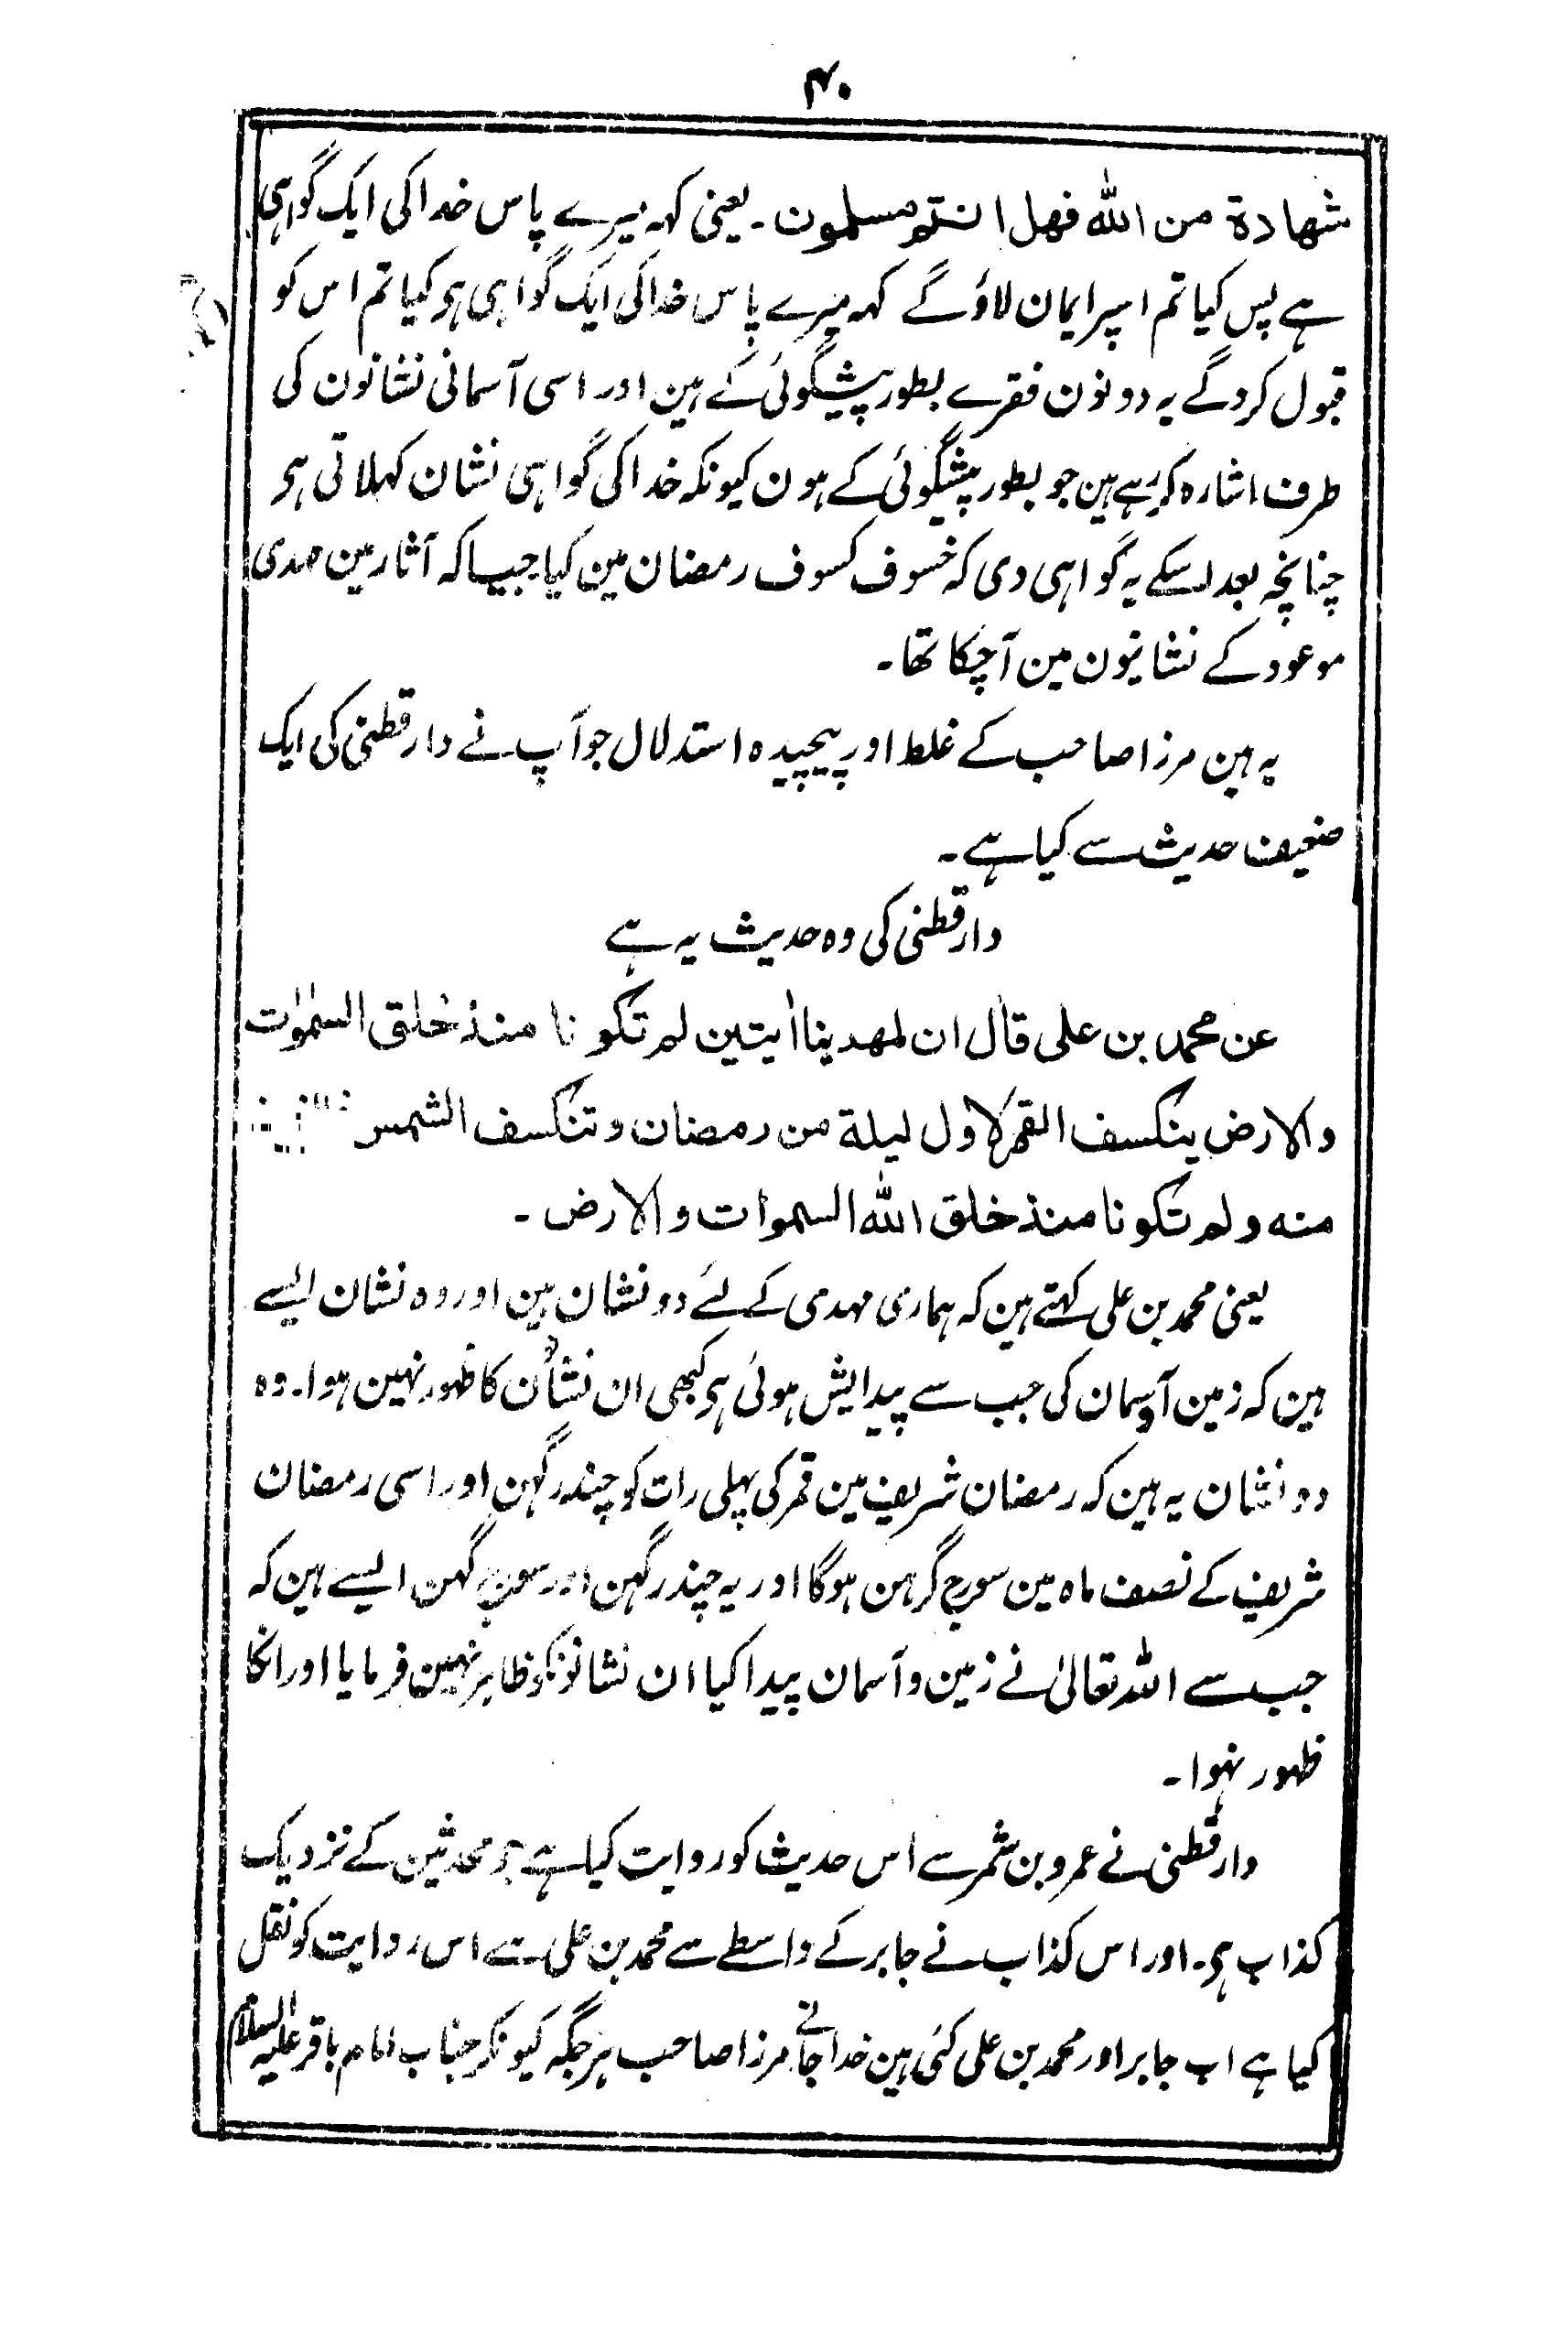 ۴۰
شهادة من الله فهل انتم مسلمون۔ یعنی کہہ میرے پاس خدا کی ایک گواہی
ہے پس کیا تم اسپر ایمان لاؤگے کہہ میرے پاس خدا کی ایک گواہی ہی کیا تم اس کو
قبول کروگے یہ دونون فقرے بطور پیشگوئی کے ہین اور اسی آسمانی نشانون کی
طرف اشارہ کررہے ہین جو بطور پیشگوئی کے ہون کیونکہ خدا کی گواہی نشان کہلاتی ہی
چنانچہ بعد اسکے یہ گواہی دی کہ خسوف کسوف رمضان مین کیا جیسا کہ آثار مین مہدی
موعود کے نشانیون مین آچکا تھا۔
یہ ہین مرزا صاحب کے غلط اور پیچیدہ استدلال جو آپ نے دارقطنی کی ایک
ضعیف حدیث سے کیا ہے۔
دارقطنی کی وہ حدیث یہ ہے
عن محمد بن علی قال ان لمهدینا اٰیتین لم تکونا منذ خلق السمٰوٰت
والارض ینکسف القمر لاول لیلة من رمضان وتنکسف الشمس
منه ولم تکونا منذ خلق الله السموات والارض۔
یعنی محمد بن علی کہتے ہین کہ ہماری مہدی کے لئے دو نشان ہین اور وہ نشان ایسے
ہین کہ زمین و آسمان کی جب سے پیدایش ہوئی ہی کبھی ان نشانون کا ظہور نہین ہوا۔ وہ
دو نشان یہ ہین کہ رمضان شریف مین قمر کی پہلی رات کو چندرگہن اور اسی رمضان
شریف کے نصف ماہ مین سورج گرہن ہوگا اور یہ چندرگہن اور سورج گہن ایسے ہین کہ
جب سے اللہ تعالیٰ نے زمین و آسمان پیدا کیا ان نشانونکو ظاہر نہین فرمایا اور انکا
ظہور نہوا۔
دارقطنی نے عمرو بن شمر سے اس حدیث کو روایت کیا ہے جو محدثین کے نزدیک
کذاب ہی۔ اور اس کذاب نے جابر کے واسطے سے محمد بن علی سے اس روایت کو نقل
کیا ہے اب جابر اور محمد بن علی کئی ہین خدا جانے مرزا صاحب ہر جگہ کیونکر جناب امام باقر علیہ السلام